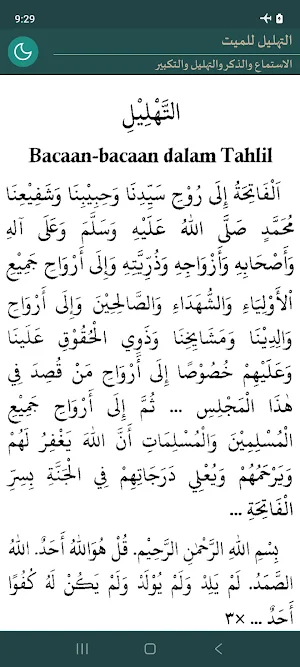 9:29
التهليل للميت
الاستماع والذكر والتهليل والتكبير
التَّهْلِيْلِ
Bacaan-bacaan dalam Tahlil
اَلْفَاتِحَةُ إِلَى رُوْحِ سَيِّدِنَا وَحَبِيْبِنَا وَشَفِيْعِنَا
مُحَمَّدٍ صَلَّى اللهُ عَلَيْهِ وَسَلَّمَ وَعَلَى آلِهِ
وَأَصْحَابِهِ وَأَزْوَاجِهِ وَذُرِّيَّتِهِ وَإِلَى أَرْوَاحِ جَمِيْعِ
الْأَوْلِيَاءِ وَالشُّهَدَاءِ وَالصَّالِحِيْنَ وَإِلَى أَرْوَاحِ
وَالِدِيْنَا وَمَشَايِخِنَا وَذَوِي الْحُقُوْقِ عَلَيْنَا
وَعَلَيْهِمْ خُصُوْصًا إِلَى أَرْوَاحِ مَنْ قُصِدَ فِي
هٰذَا الْمَجْلِسِ ... ثُمَّ إِلَى أَرْوَاحِ جَمِيْعِ
الْمُسْلِمِيْنَ وَالْمُسْلِمَاتِ أَنَّ اللهَ يَغْفِرُ لَهُمْ
وَيَرْحَمُهُمْ وَيُعْلِي دَرَجَاتِهِمْ فِي الْجَنَّةِ بِسِرِّ
الْفَاتِحَةِ ...
بِسْمِ اللهِ الرَّحْمٰنِ الرَّحِيْمِ. قُلْ هُوَاللهُ أَحَدٌ. اللهُ
الصَّمَدُ. لَمْ يَلِدْ وَلَمْ يُوْلَدْ وَلَمْ يَكُنْ لَهُ كُفُوًا
أَحَدٌ ... ×٣